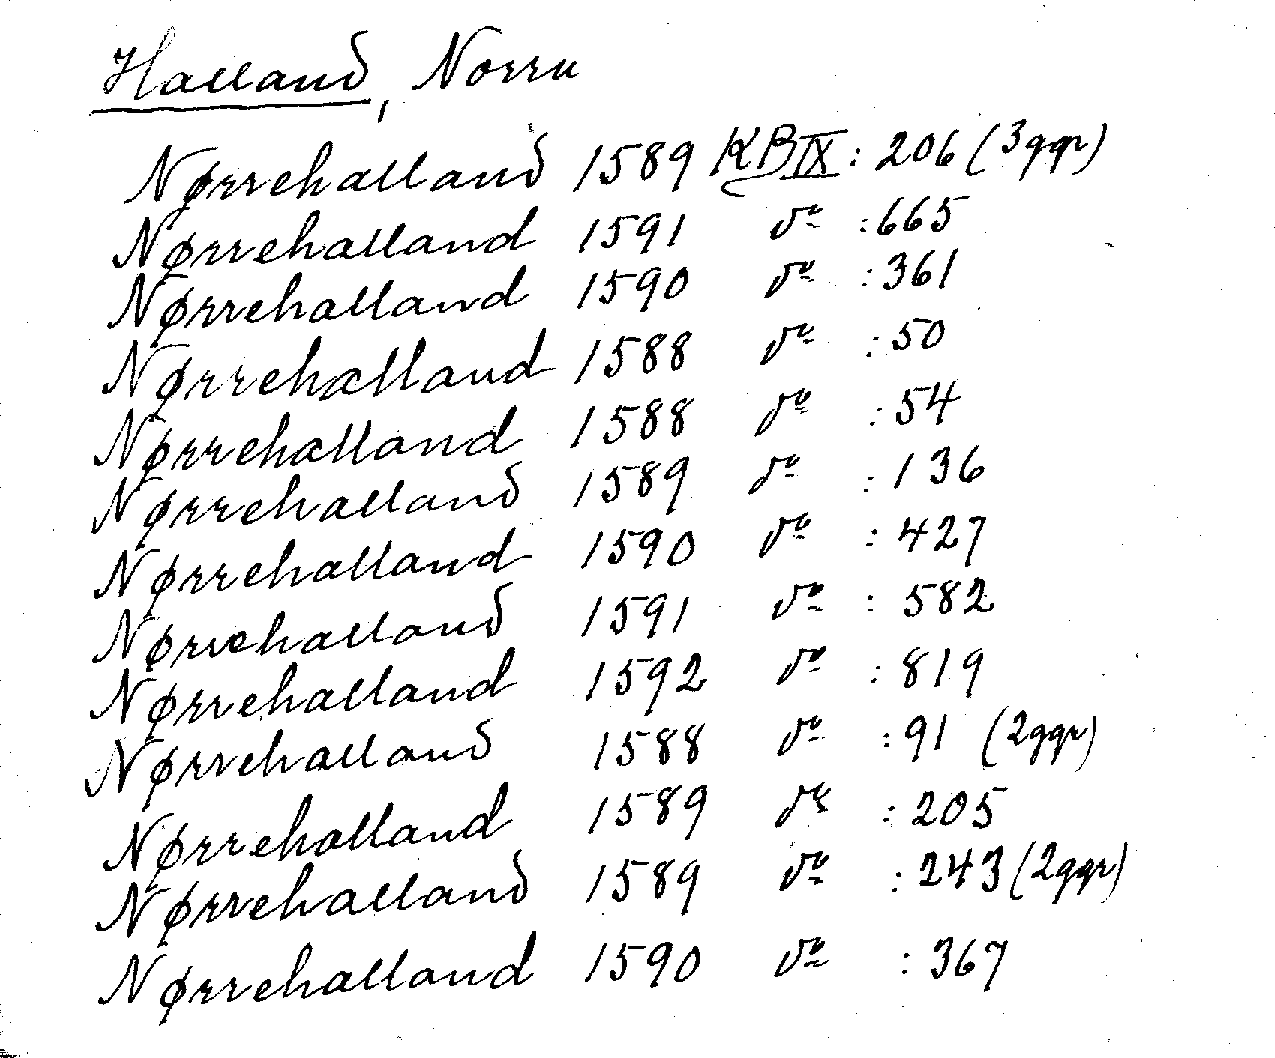 Halland, Norra
Nørrehalland 1589 KB IX : 206 (3ggr)
Nørrehalland 1591 do : 665
Nørrehalland 1590 do : 361
Nørrehalland 1588 do : 50
Nørrehalland 1588 do : 54
Nørrehalland 1589 do : 136
Nørrehalland 1590 do : 427
Nørrehalland 1591 do : 582
Nørrehalland 1592 do : 819
Nørrehalland 1588 do : 91 (2ggr)
Nørrehalland 1589 do : 205
Nørrehalland 1589 do : 243 (2ggr)
Nørrehalland 1590 do : 367